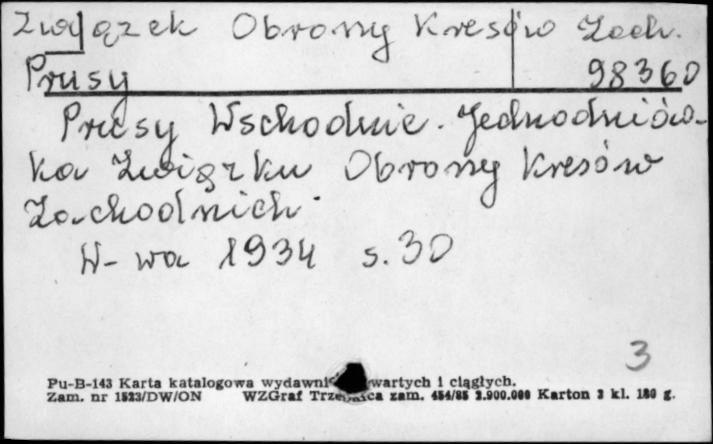 Związek Obrony Kresów Zach.
Prusy 98360
Prusy Wschodnie. Jednodniów-
ka Związku Obrony Kresów
Zachodnich.
W-wa 1934 s. 30
3
Pu-B-143 Karta katalogowa wydawni wartych i ciągłych.
Zam. nr 1523/DW/ON WZGraf zam. 454/85 2.900.000 Karton 3 kl. 180 g.